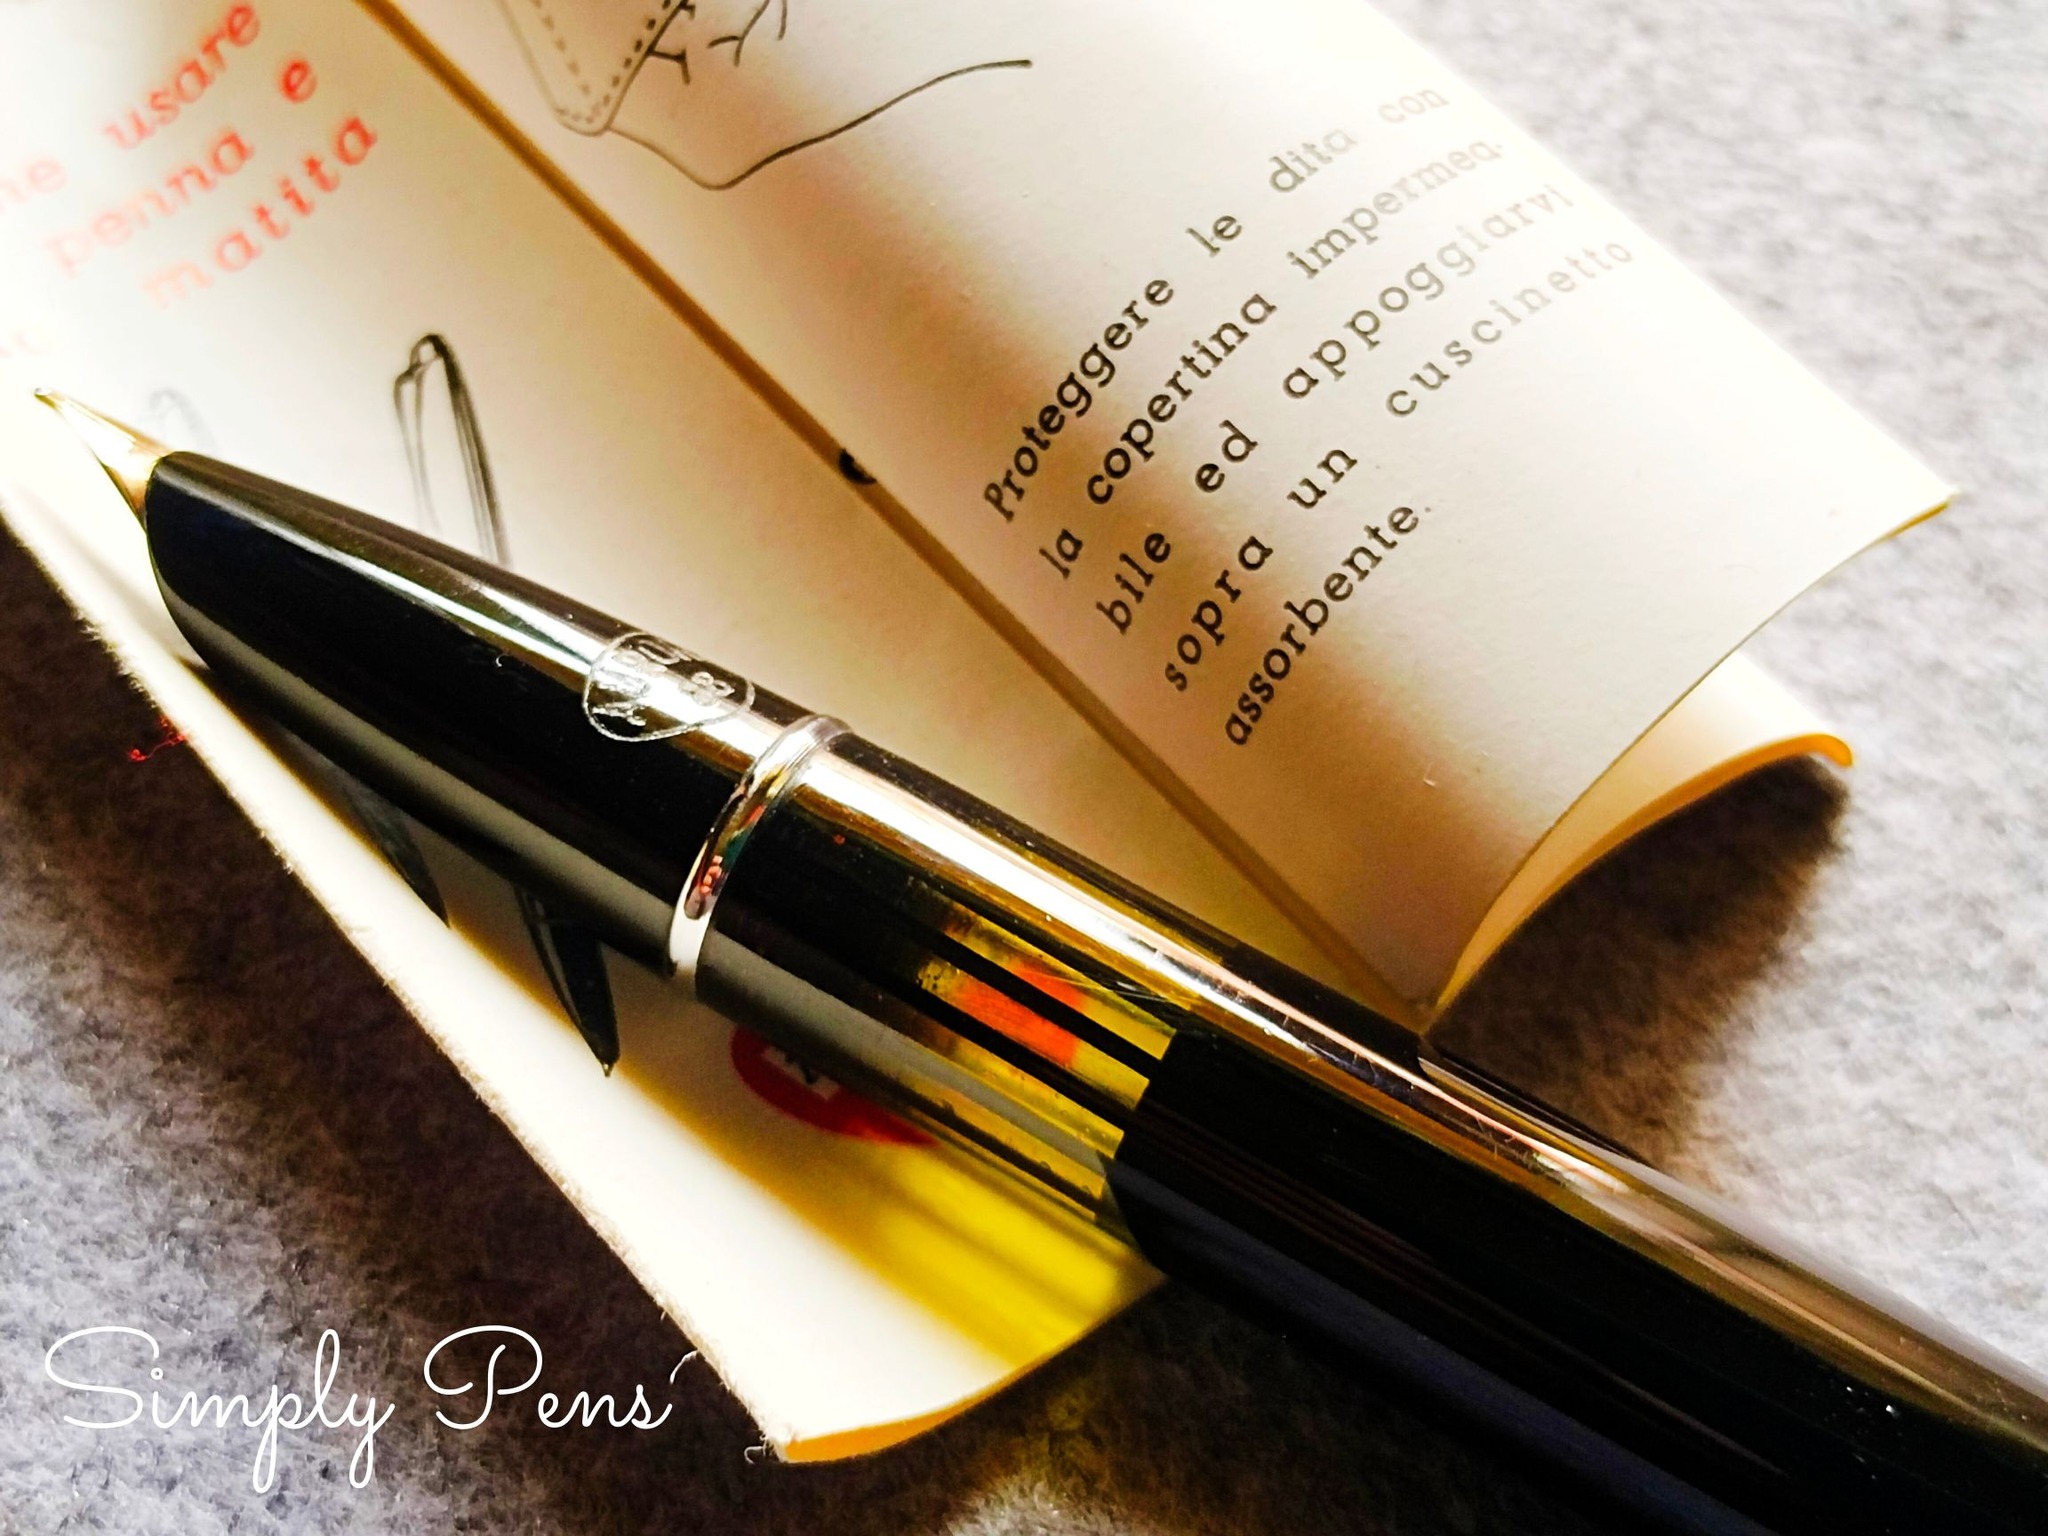 usare
penna e
matita
Proteggere le dita con
la copertina impermea-
bile ed appoggiarvi
sopra un cuscinetto
assorbente.
Simply Pens